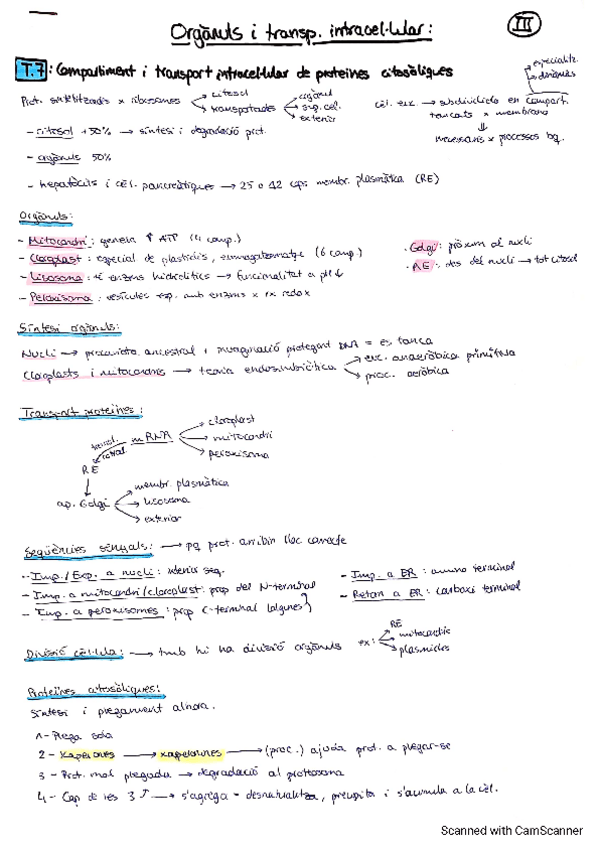 Orgànuls i transp. intracel·lular:
III
T.7: Compartiment i transport intracel·lular de proteïnes citosòliques
Prot. sintetitzades x ribosomes → citosol
→ transportades → orgànul
→ sup. cèl.
→ exterior
cèl. euc. → subdividida en compart. → especialitz.
→ dinàmics
tancats x membrana
⇓
necessaris x processos bq.
- citosol +50% → síntesi i degradació prot.
- orgànuls 50%
- hepatòcits i cèl. pancreàtiques → 25 o 12 cops membr. plasmàtica (RE)
Orgànuls:
- Mitocondri: genera ↑ ATP (4 comp.)
- Cloroplast: especial de plastidis, emmagatzematge (6 comp.)
- Lisosoma: té enzims hidrolítics → funcionalitat a pH↓
- Peroxisoma: vesícules esp. amb enzims x rx redox
· Golgi: pròxim al nucli
· RE: des del nucli → tot citosol
Síntesi orgànuls:
Nucli → procariota ancestral, invaginació protegint DNA = es tanca
Cloroplasts i mitocondris → teoria endosimbiòtica → euc. anaeròbica primitiva
→ proc. aeròbica
Transport proteïnes:
mRNA → cloroplast
→ mitocondri
→ peroxisoma
RE
ap. Golgi → membr. plasmàtica
→ lisosoma
→ exterior
Seqüències senyals: → pq prot. arribin lloc correcte
- Imp./Exp. a nucli: interior seq.
- Imp. a mitocondri/cloroplast: prop del N-terminal
- Imp. a peroxisomes: prop C-terminal (algunes)
- Imp. a ER: amino terminal
- Retan a ER: carboxi terminal
Divisió cèl·lula: → tmb hi ha divisió orgànuls ex: → RE
→ mitocondris
→ plasmides
Proteïnes citosòliques:
Síntesi i plegament alhora.
1- Plega sola
2- Xaperones → xaperonines → (proc.) ajuda prot. a plegar-se
3- Prot. mal plegada → degradació al proteosoma
4- Cap de les 3 ⤴ → s'agrega = desnaturalitza, precipita i s'acumula a la cèl.
Scanned with CamScanner